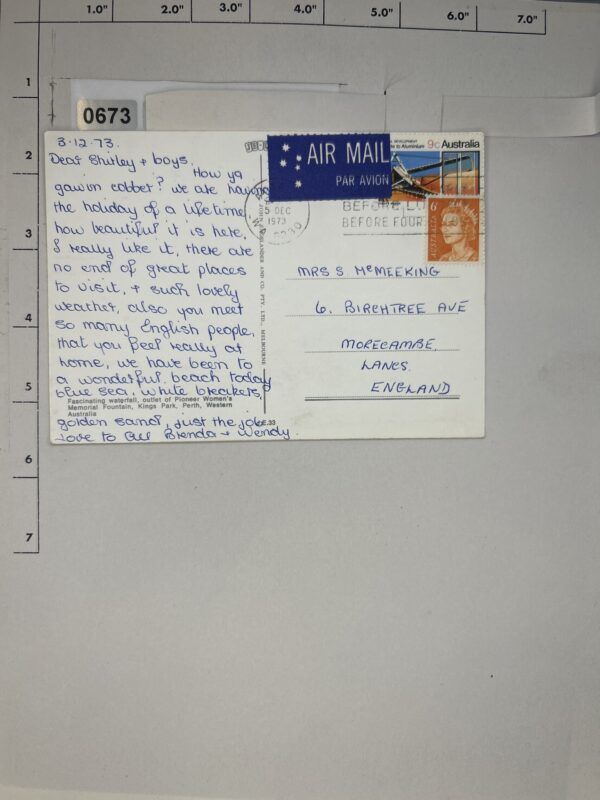 1.0" 2.0" 3.0" 4.0" 5.0" 6.0" 7.0"
1
2
3
4
5
6
7
0673
3.12.73.
Dear Shirley + boys.
How ya
gawin cobber? we are having
the holiday of a lifetime,
how beautiful it is here,
I really like it, there are
no end of great places
to visit, + such lovely
weather, also you meet
so many English people,
that you feel really at
home, we have been to
a wonderful beach today
blue sea, white breakers,
Fascinating waterfall, outlet of Pioneer Women's
Memorial Fountain, Kings Park, Perth, Western
Australia
golden sand, just the job.
Love to all Brenda + Wendy.
AND CO. PTY. LTD., MELBOURNE
E.33
AIR MAIL
PAR AVION
DEVELOPMENT
to Aluminium
9c Australia
6c
AUSTRALIA
5 DEC
1973
BEFORE
BEFORE FOUR
MRS S McMEEKING
6. BIRCHTREE AVE
MORECAMBE.
LANCS.
ENGLAND